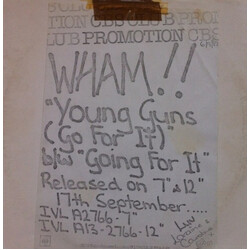 TION CBS CLUB PROM
LUB PROMOTION CBS
WHAM!!
"YOUNG GUNS
(GO FOR IT)"
b/w "GOING FOR IT"
RELEASED ON 7" & 12"
17th SEPTEMBER.....
IVL A2766 - 7"
IVL A13-2766-12"